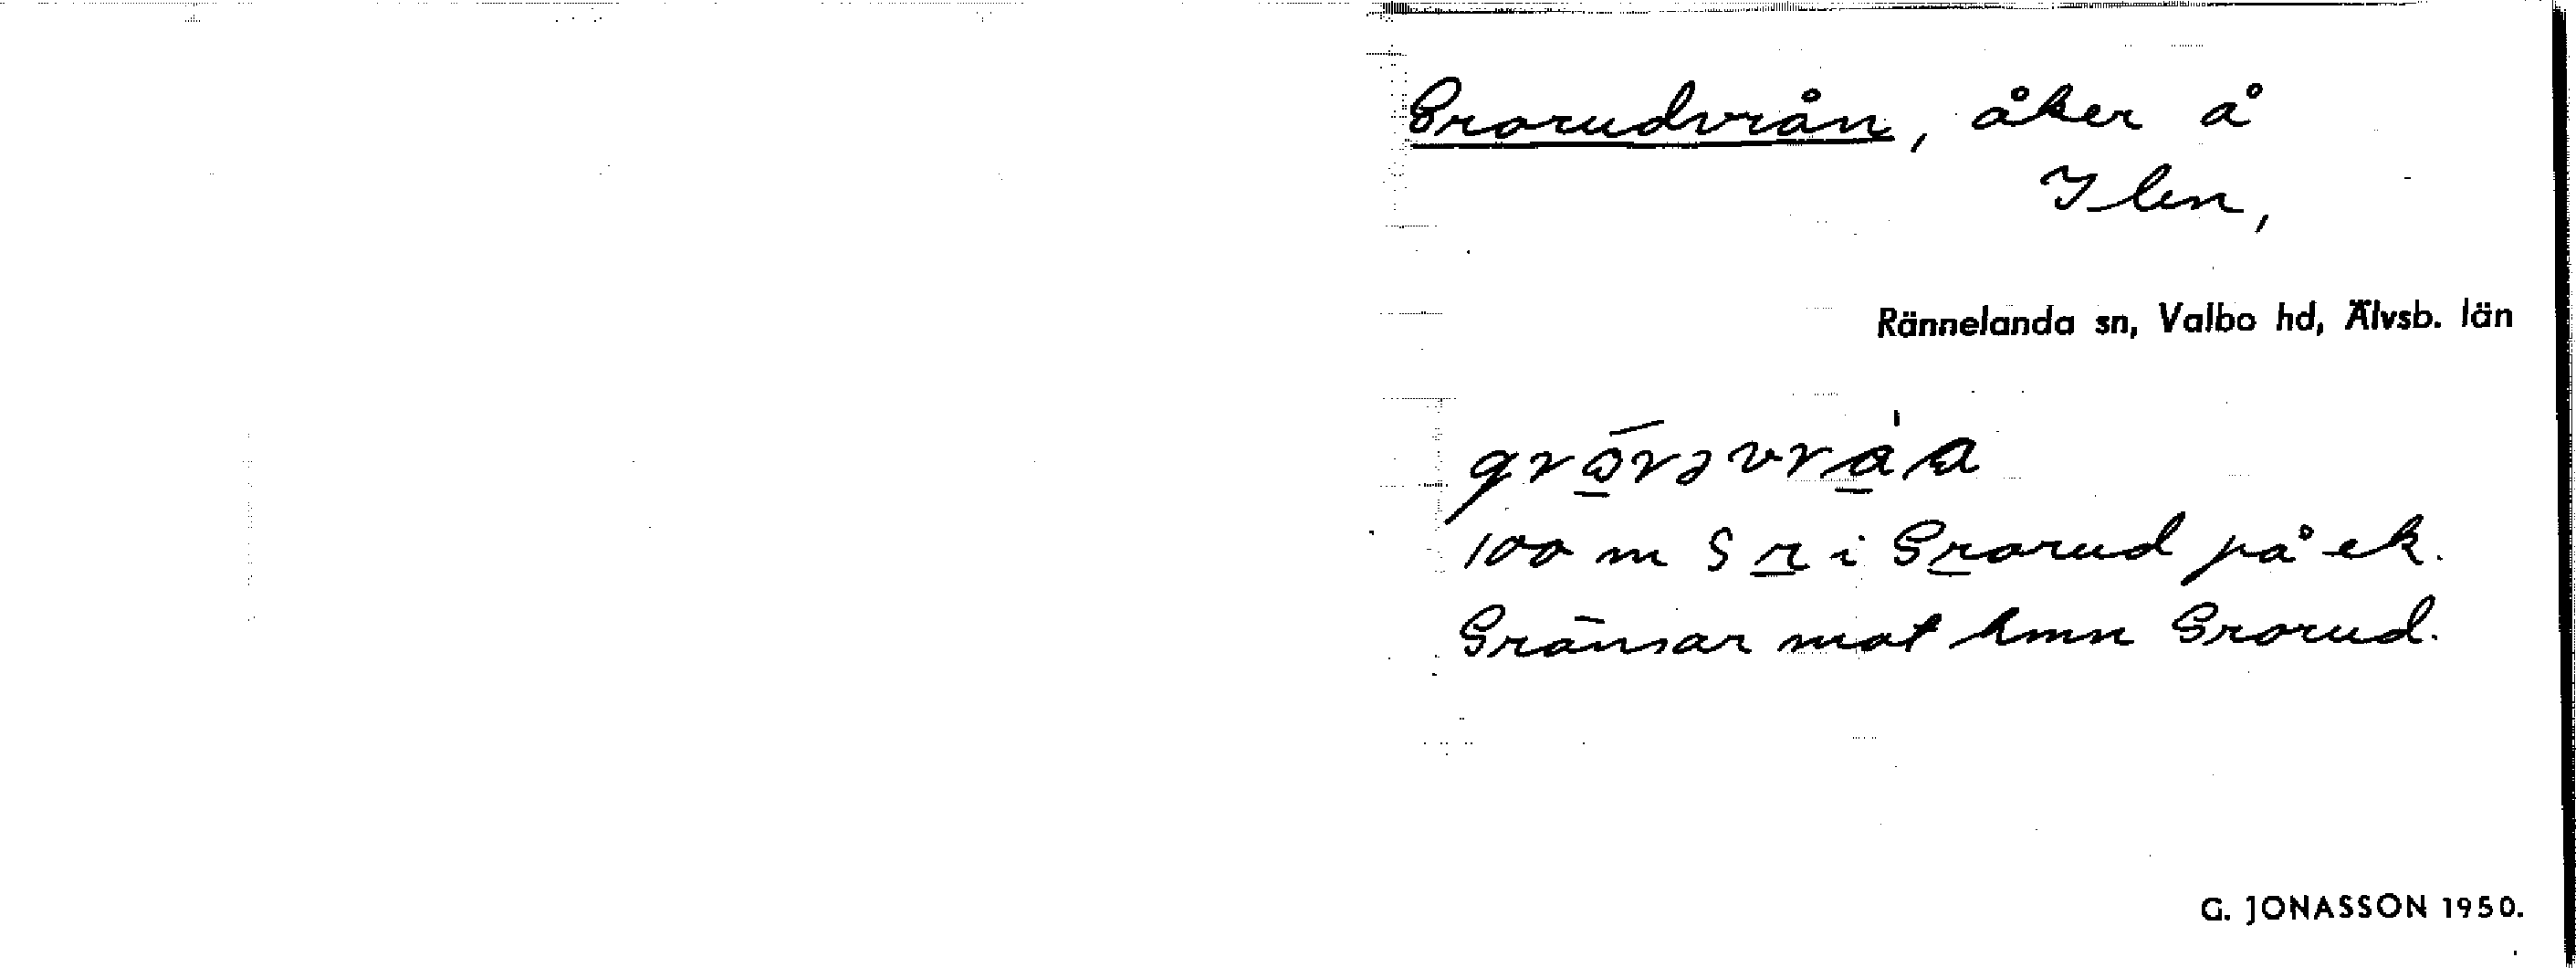 Grorudvrån, åker å
Ilen,
Rännelanda sn, Valbo hd, Älvsb. län
100 m S r i Grorud på ek.
Gränsar mot hmn Grorud.
G. JONASSON 1950.